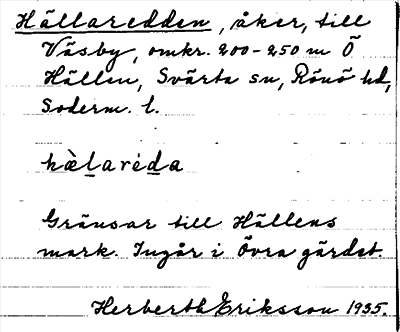 Hällaredden, åker, till
Väsby, omkr. 200-250 m Ö
Hällen, Svärta sn, Rönö hd,
Söderm. l.
hèlaréda
Gränsar till Hällens
mark. Ingår i Övra gärdet.
Herberth Eriksson 1935.